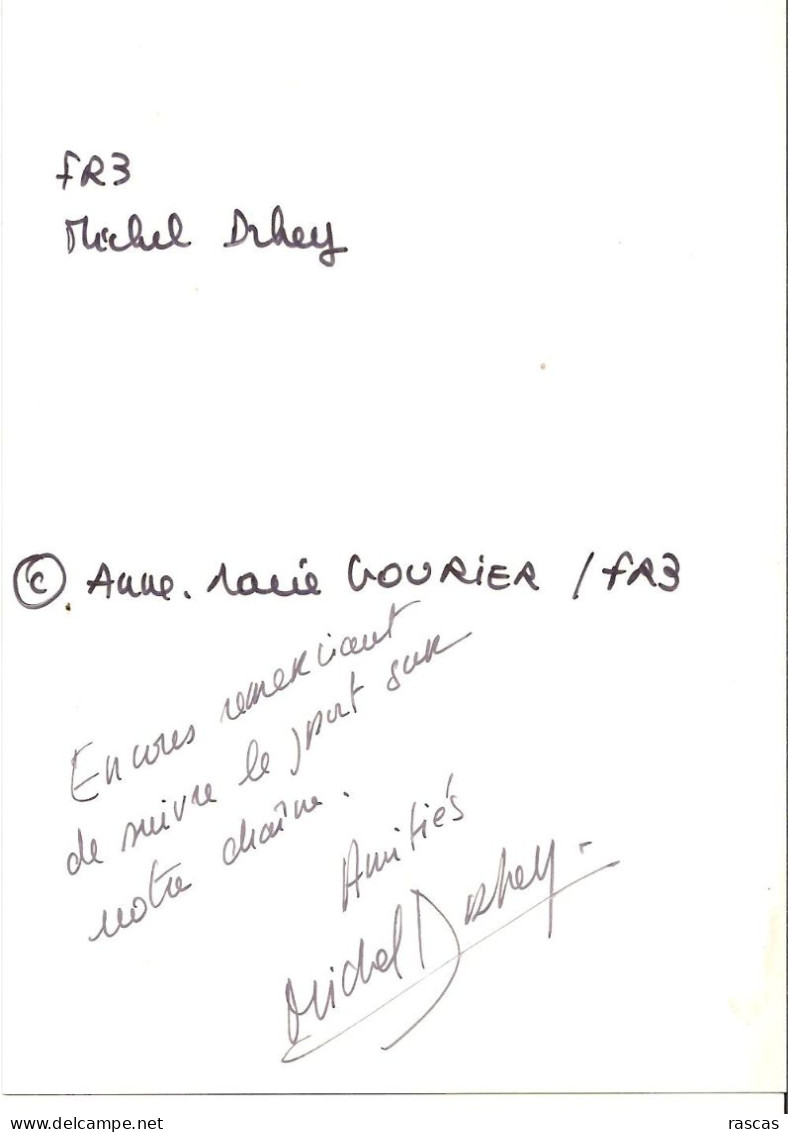 FR3
Michel Drhey
© Anne-Marie GOURIER / FR3
En vous remerciant
de suivre le sport sur
notre chaîne.
Amitiés
Michel Drhey
rascas
www.delcampe.net